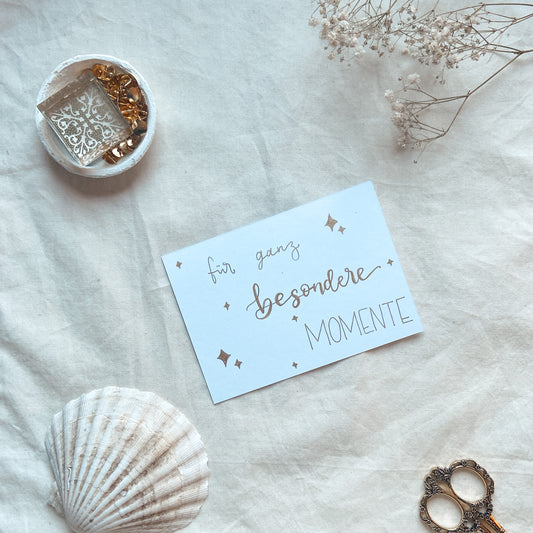 für ganz
besondere
MOMENTE